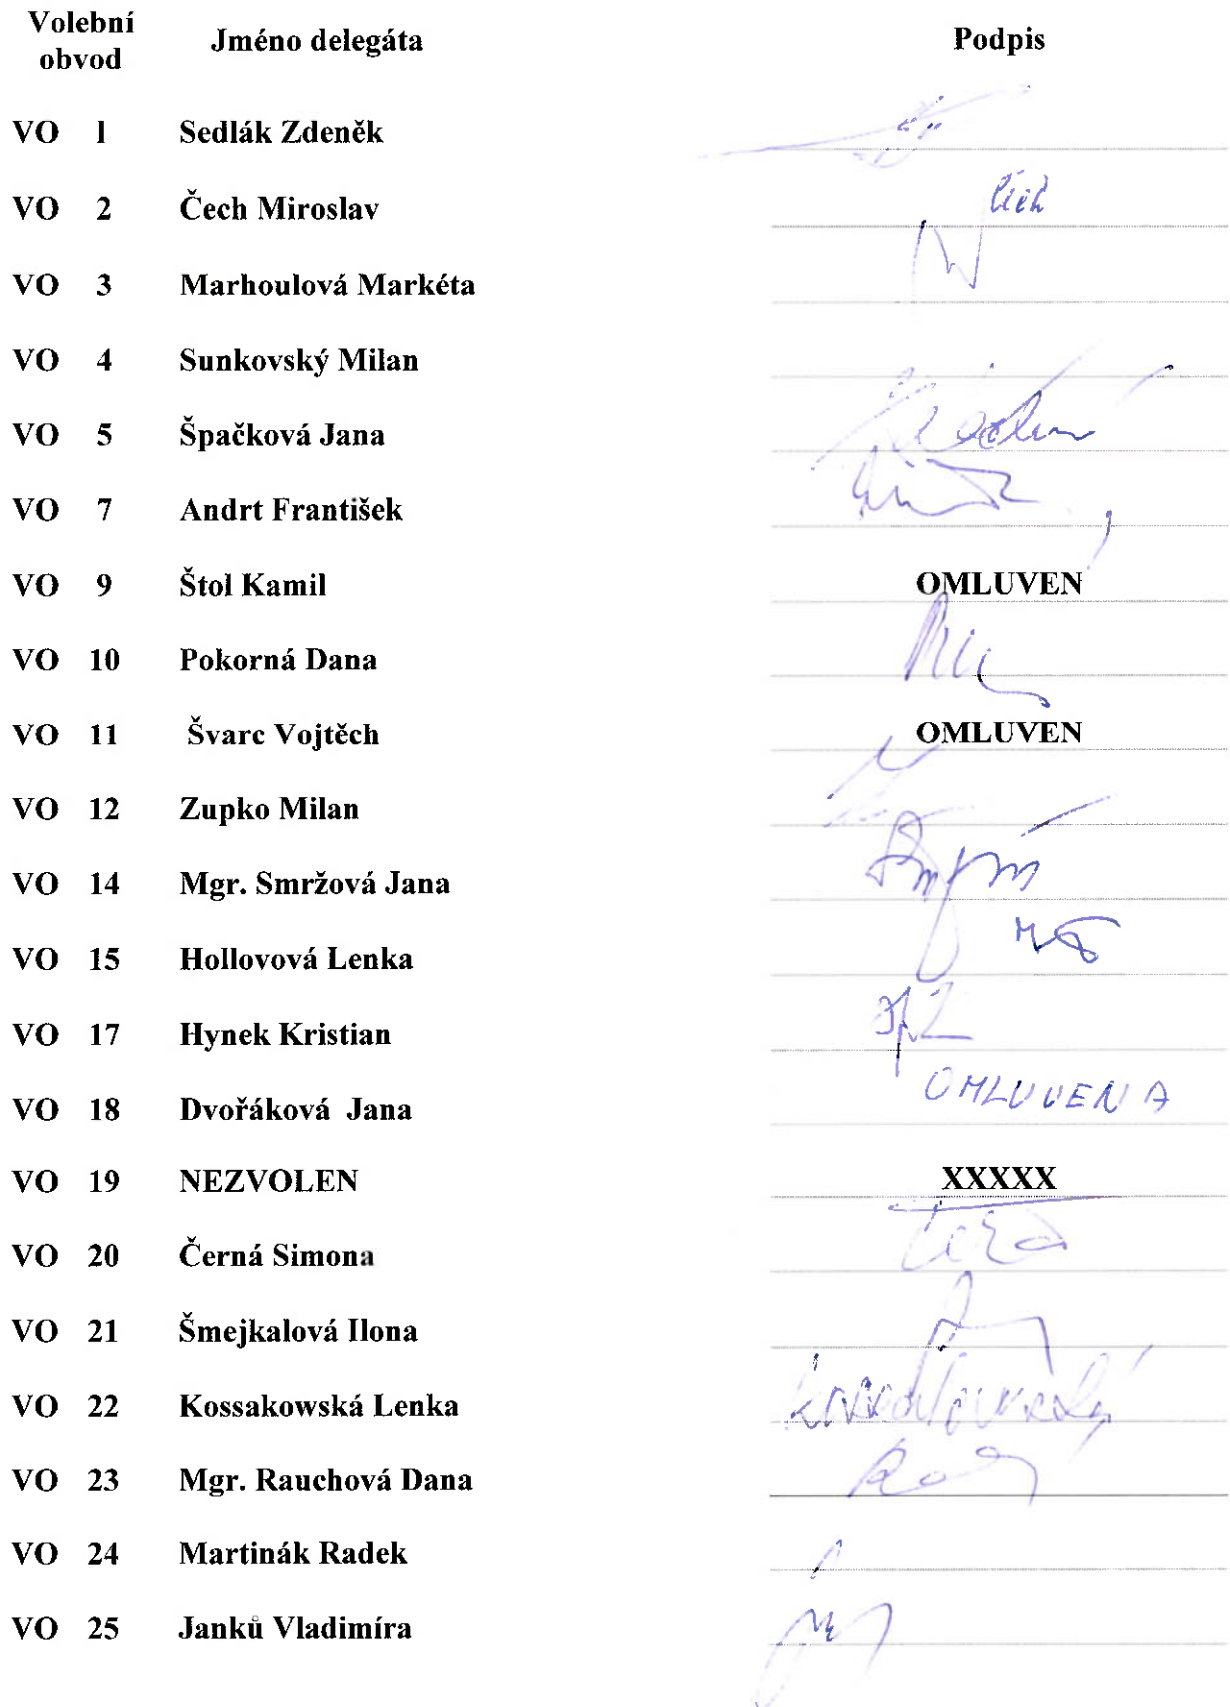 Volební obvod Jméno delegáta Podpis
VO 1 Sedlák Zdeněk
VO 2 Čech Miroslav Čech
VO 3 Marhoulová Markéta
VO 4 Sunkovský Milan
VO 5 Špačková Jana
VO 7 Andrt František
VO 9 Štol Kamil OMLUVEN
VO 10 Pokorná Dana
VO 11 Švarc Vojtěch OMLUVEN
VO 12 Zupko Milan
VO 14 Mgr. Smržová Jana
VO 15 Hollovová Lenka
VO 17 Hynek Kristian
VO 18 Dvořáková Jana OMLUVENA
VO 19 NEZVOLEN XXXXX
VO 20 Černá Simona
VO 21 Šmejkalová Ilona
VO 22 Kossakowská Lenka
VO 23 Mgr. Rauchová Dana
VO 24 Martinák Radek
VO 25 Janků Vladimíra